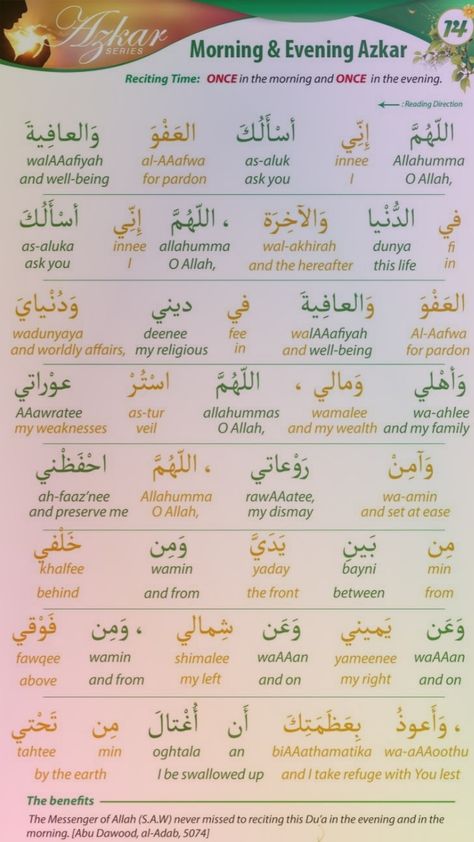 Azkar
SERIES
Morning & Evening Azkar
14
Reciting Time: ONCE in the morning and ONCE in the evening.
: Reading Direction
اللّهُمَّ إِنِّي أسْأَلُكَ العَفْوَ وَالعافِيةَ
Allahumma innee as-aluk al-AAafwa walAAafiyah
O Allah, I ask you for pardon and well-being
في الدُّنْيا وَالآخِرَة ، اللّهُمَّ إِنِّي أسْأَلُكَ
fi dunya wal-akhirah allahumma innee as-aluka
in this life and the hereafter O Allah, I ask you
العَفْوَ وَالعافِيةَ في ديني وَدُنْيايَ
Al-Aafwa walAAafiyah fee deenee wadunyaya
for pardon and well-being in my religious and worldly affairs,
وَأهْلي وَمالي ، اللّهُمَّ اسْتُرْ عوْراتي
wa-ahlee wamalee allahummas as-tur AAawratee
and my family and my wealth O Allah, veil my weaknesses
وَآمِنْ رَوْعاتي ، اللّهُمَّ احْفَظْني
wa-amin rawAAatee, Allahumma ah-faaz'nee
and set at ease my dismay O Allah, and preserve me
مِن بَينِ يَدَيَّ وَمِن خَلْفي
min bayni yaday wamin khalfee
from between the front and from behind
وَعَن يَميني وَعَن شِمالي ، وَمِن فَوْقي
waAAan yameenee waAAan shimalee wamin fawqee
and on my right and on my left and from above
، وَأَعوذُ بِعَظَمَتِكَ أَن أُغْتالَ مِن تَحْتي
wa-aAAoothu biAAathamatika an oghtala min tahtee
and I take refuge with You lest I be swallowed up by the earth
The benefits
The Messenger of Allah (S.A.W) never missed to reciting this Du'a in the evening and in the
morning. [Abu Dawood, al-Adab, 5074]